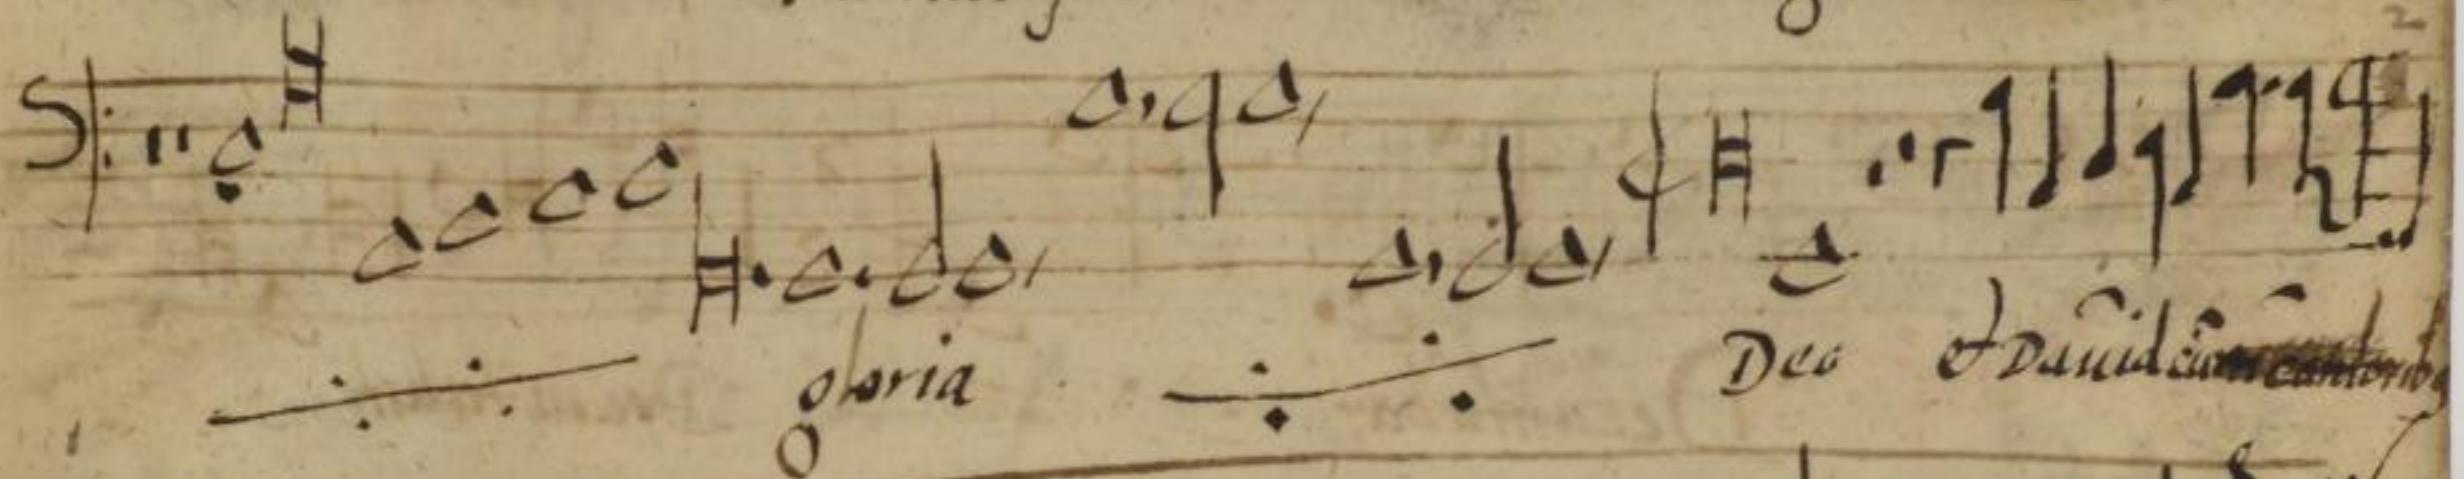 2
gloria Deo et Dauid cum cantorib9